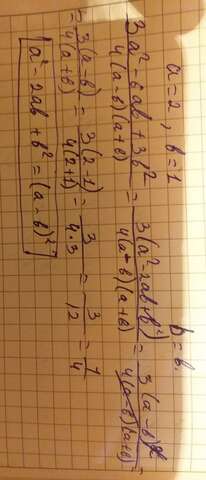 a=2, b=1
b = в.
(3a² - 6ab + 3b²)/(4(a-b)(a+b)) = (3(a²-2ab+b²))/(4(a-b)(a+b)) = (3(a-b)²)/(4(a-b)(a+b)) =
= (3(a-b))/(4(a+b)) = (3(2-1))/(4(2+1)) = 3/(4·3) = 3/12 = 1/4
a² - 2ab + b² = (a-b)²